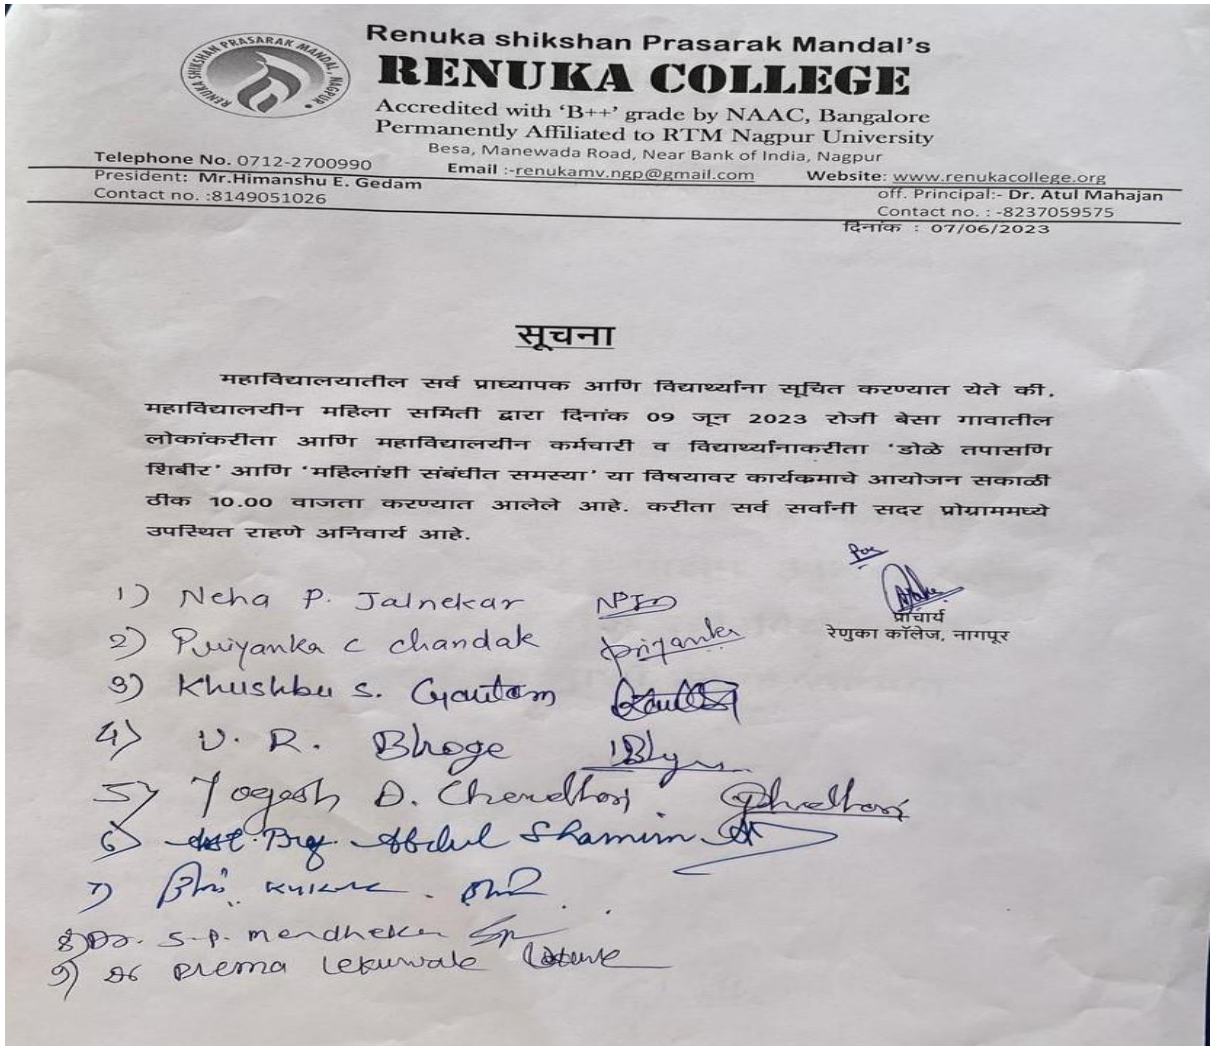 RENUKA SHIKSHAN PRASARAK MANDAL, NAGPUR.
Renuka shikshan Prasarak Mandal's
RENUKA COLLEGE
Accredited with 'B++' grade by NAAC, Bangalore
Permanently Affiliated to RTM Nagpur University
Besa, Manewada Road, Near Bank of India, Nagpur
Telephone No. 0712-2700990 Email :-renukamv.ngp@gmail.com Website: www.renukacollege.org
President: Mr.Himanshu E. Gedam off. Principal:- Dr. Atul Mahajan
Contact no. :8149051026 Contact no. : -8237059575
दिनांक : 07/06/2023
सूचना
महाविद्यालयातील सर्व प्राध्यापक आणि विद्यार्थ्यांना सूचित करण्यात येते की.
महाविद्यालयीन महिला समिती द्वारा दिनांक 09 जून 2023 रोजी बेसा गावातील
लोकांकरीता आणि महाविद्यालयीन कर्मचारी व विद्यार्थ्यांनाकरीता 'डोळे तपासणि
शिबीर' आणि 'महिलांशी संबंधीत समस्या' या विषयावर कार्यकमाचे आयोजन सकाळी
ठीक 10.00 वाजता करण्यात आलेले आहे. करीता सर्व सर्वांनी सदर प्रोग्राममध्ये
उपस्थित राहणे अनिवार्य आहे.
प्राचार्य
रेणुका कॉलेज, नागपूर
1) Neha P. Jalnekar
2) Priyanka C Chandak Priyanka
3) Khushbu S. Gautam
4) V. R. Bhoge
5) Yogesh D. Choudhari
6) Asst. Prof. Abdul Shamim
7)
8) Dr. S.P. Mendhekar
9) Dr Prema Lekurwale